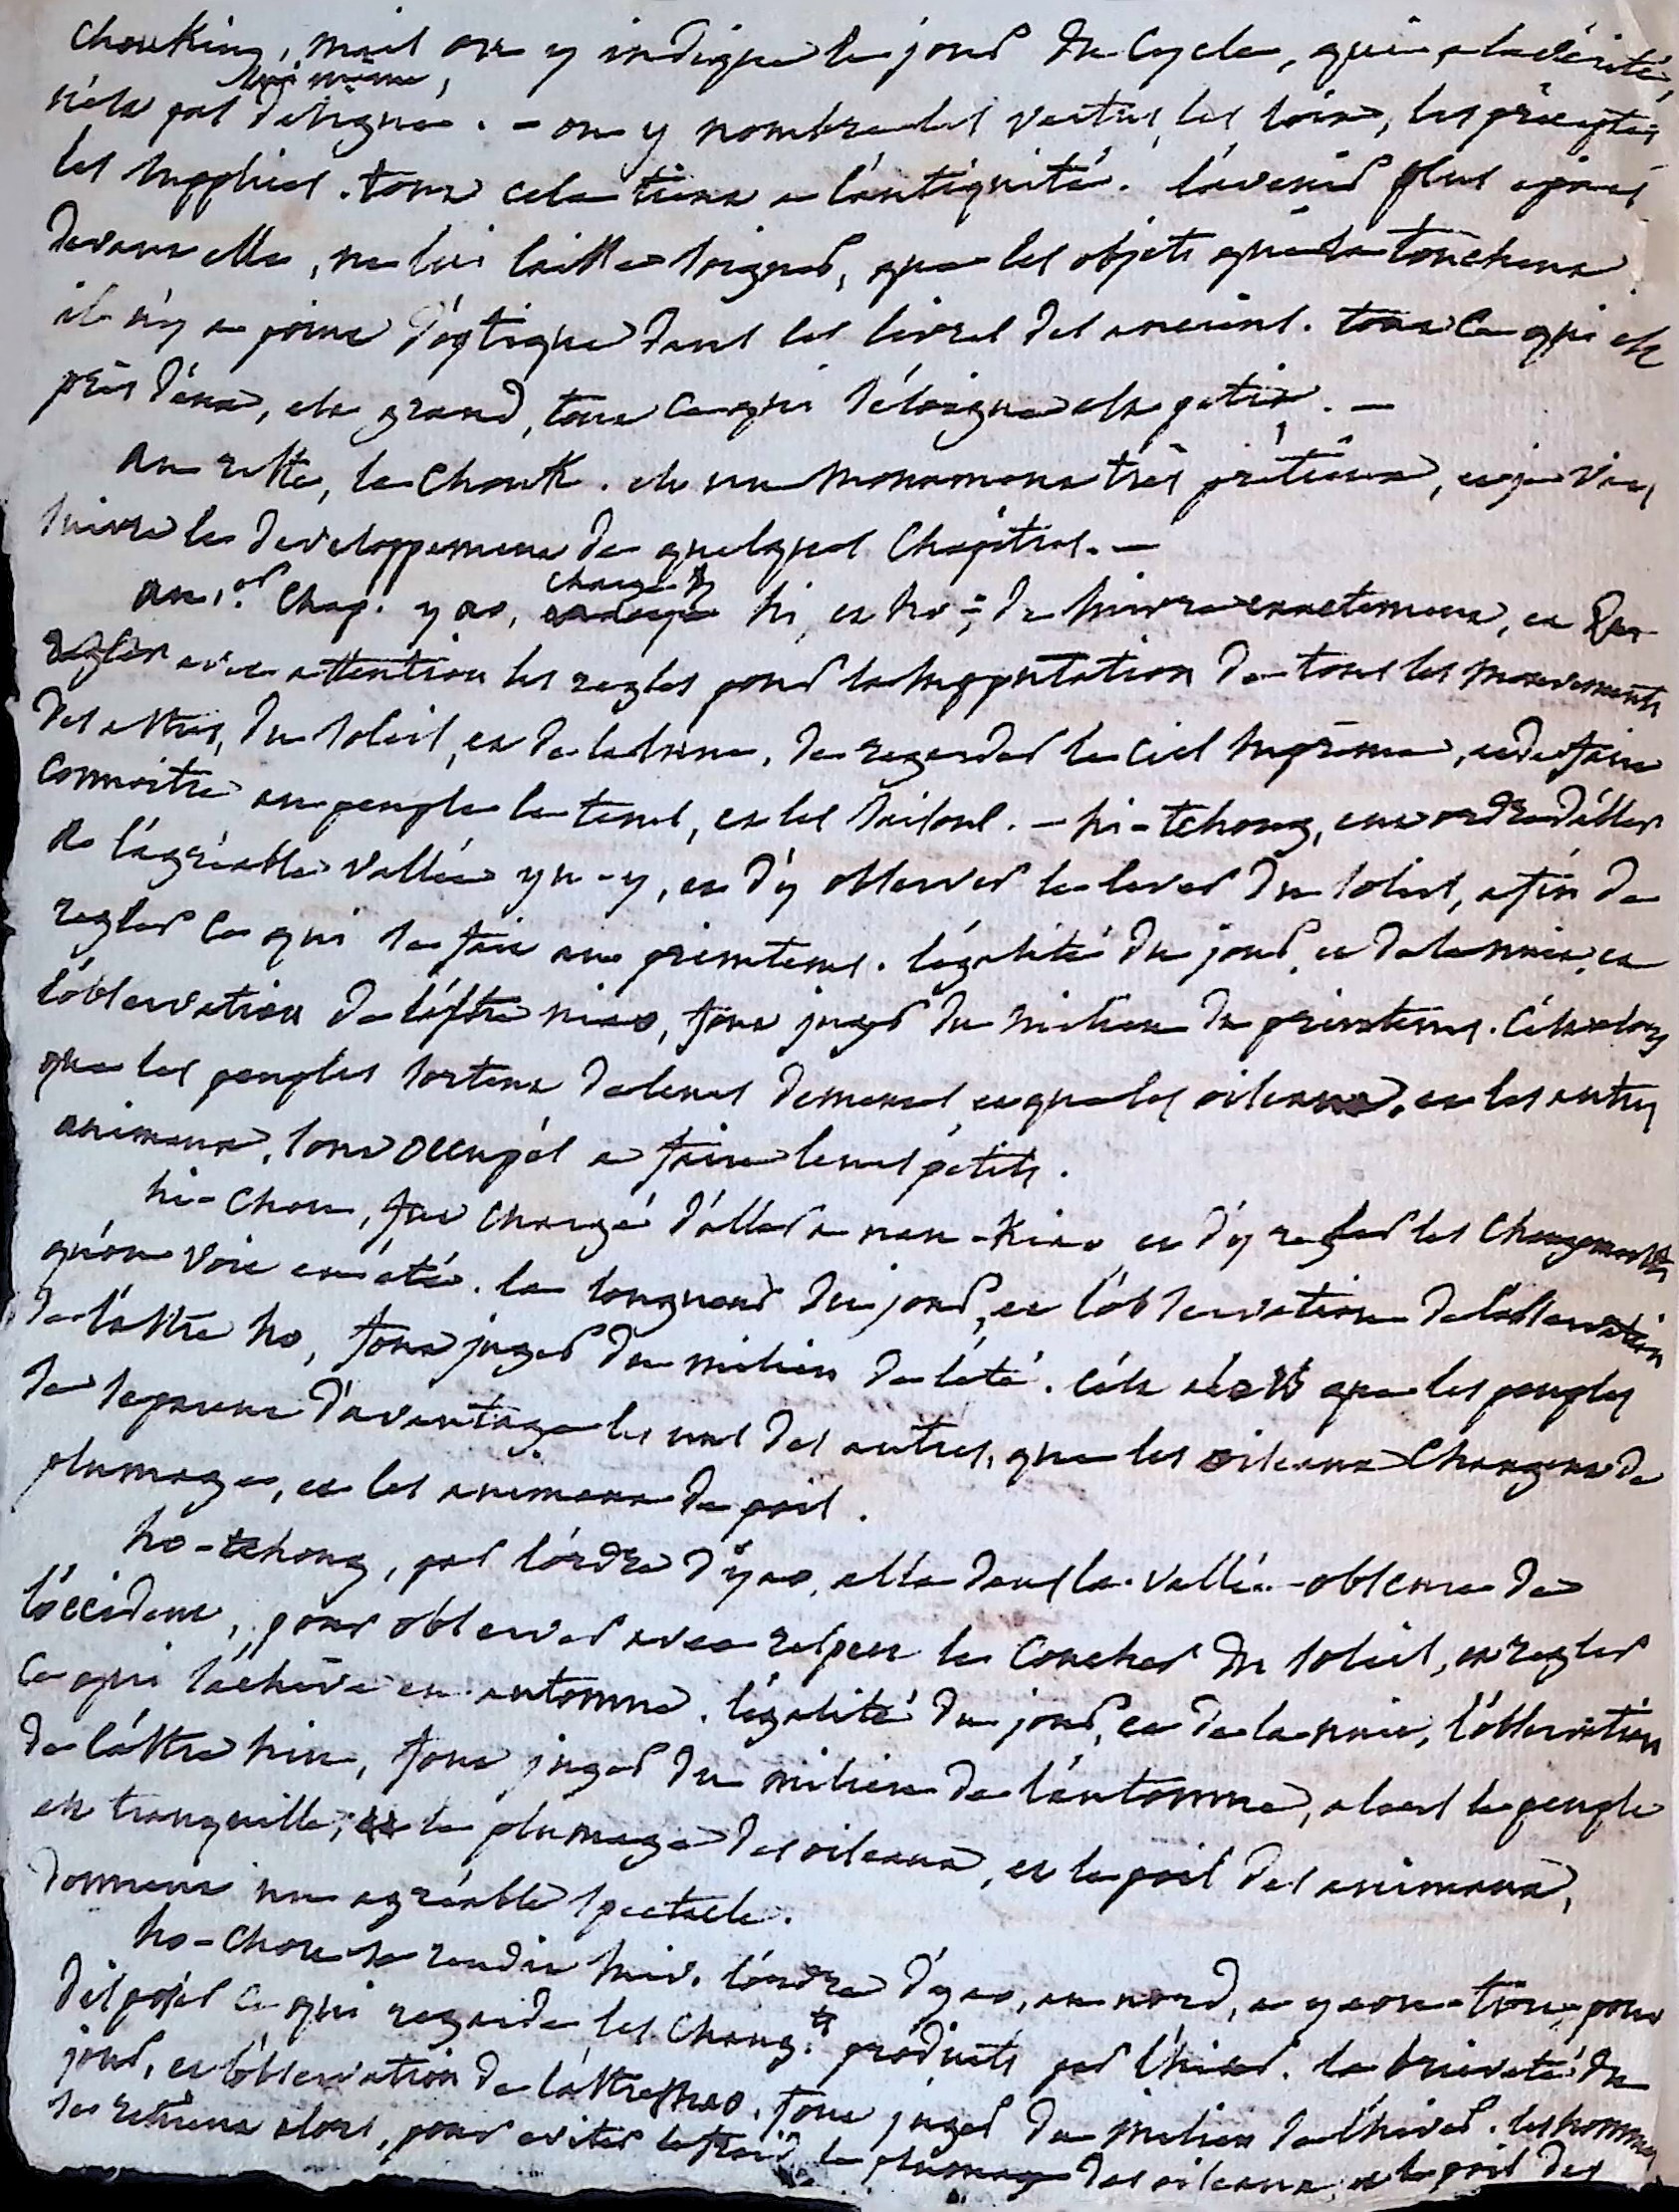 chouking, mais on y indique le jour du Cycle, qui, a la vérité,
n'est pas designé lui même. - on y nombre les vertus, les loix, les préceptes,
les supplices. tout cela tient a l'antiquité. l'avenir plus après
devant elle, ne lui laisse soigner, que les objets qui la touchent
il n'y a point d'optique dans les livres des anciens. tout ce qui est
près d'eux, est grand, tout ce qui s'éloigne est petit. —
au reste, le Chouk. est un monument très prétieux, et je vais
suivre le developpement de quelques Chapitres. —
au 1er Chap. yao, chargea hi, et ho, de suivre exactement, et de
regler avec attention les regles pour la supputation de tous les mouvements
des astres, du soleil, et de la lune, de regarder le ciel suprême, et de faire
connoitre au peuple le tems, et les saisons. - hi-tchong, eut ordre d'aller
a l'agréable vallée yu-y, et d'y observer le lever du soleil, afin de
regler ce qui se fait au printems. l'égalité du jour, et de la nuit, et
l'observation de l'astre niao, font juger du milieu du printems. c'est alors
que les peuples sortent de leurs demeures, et que les oiseaux, et les autres
animaux, sont occupés a faire leurs petits.
hi-chou, fut chargé d'aller a nan-kiao et d'y regler les changements
qu'on voit en été. la longueur du jour, et l'observation de l'observation
de l'astre ho, font juger du milieu de l'été. c'est alors que les peuples
se separent d'avantage les uns des autres, que les oiseaux changent de
plumage, et les animaux de poil.
ho-tchong, par l'ordre d'yao, alla dans la vallée obscure de
l'occident, pour observer avec respect le coucher du soleil, et regler
ce qui s'achève en automne. l'égalité du jour, et de la nuit, l'observation
de l'astre hiu, font juger du milieu de l'automne, alors le peuple
est tranquille, le plumage des oiseaux, et le poil des animaux,
donnent un agréable spectacle.
ho-chou se rendit suiv. l'ordre d'yao, au nord, a yeou-tou, pour
disposer ce qui regarde les chang.ts produits par l'hiver. la brieveté du
jour, et l'observation de l'astre mao, font juger du milieu de l'hiver. les hommes
se retirent alors, pour eviter le froid, le plumage des oiseaux, et le poil des